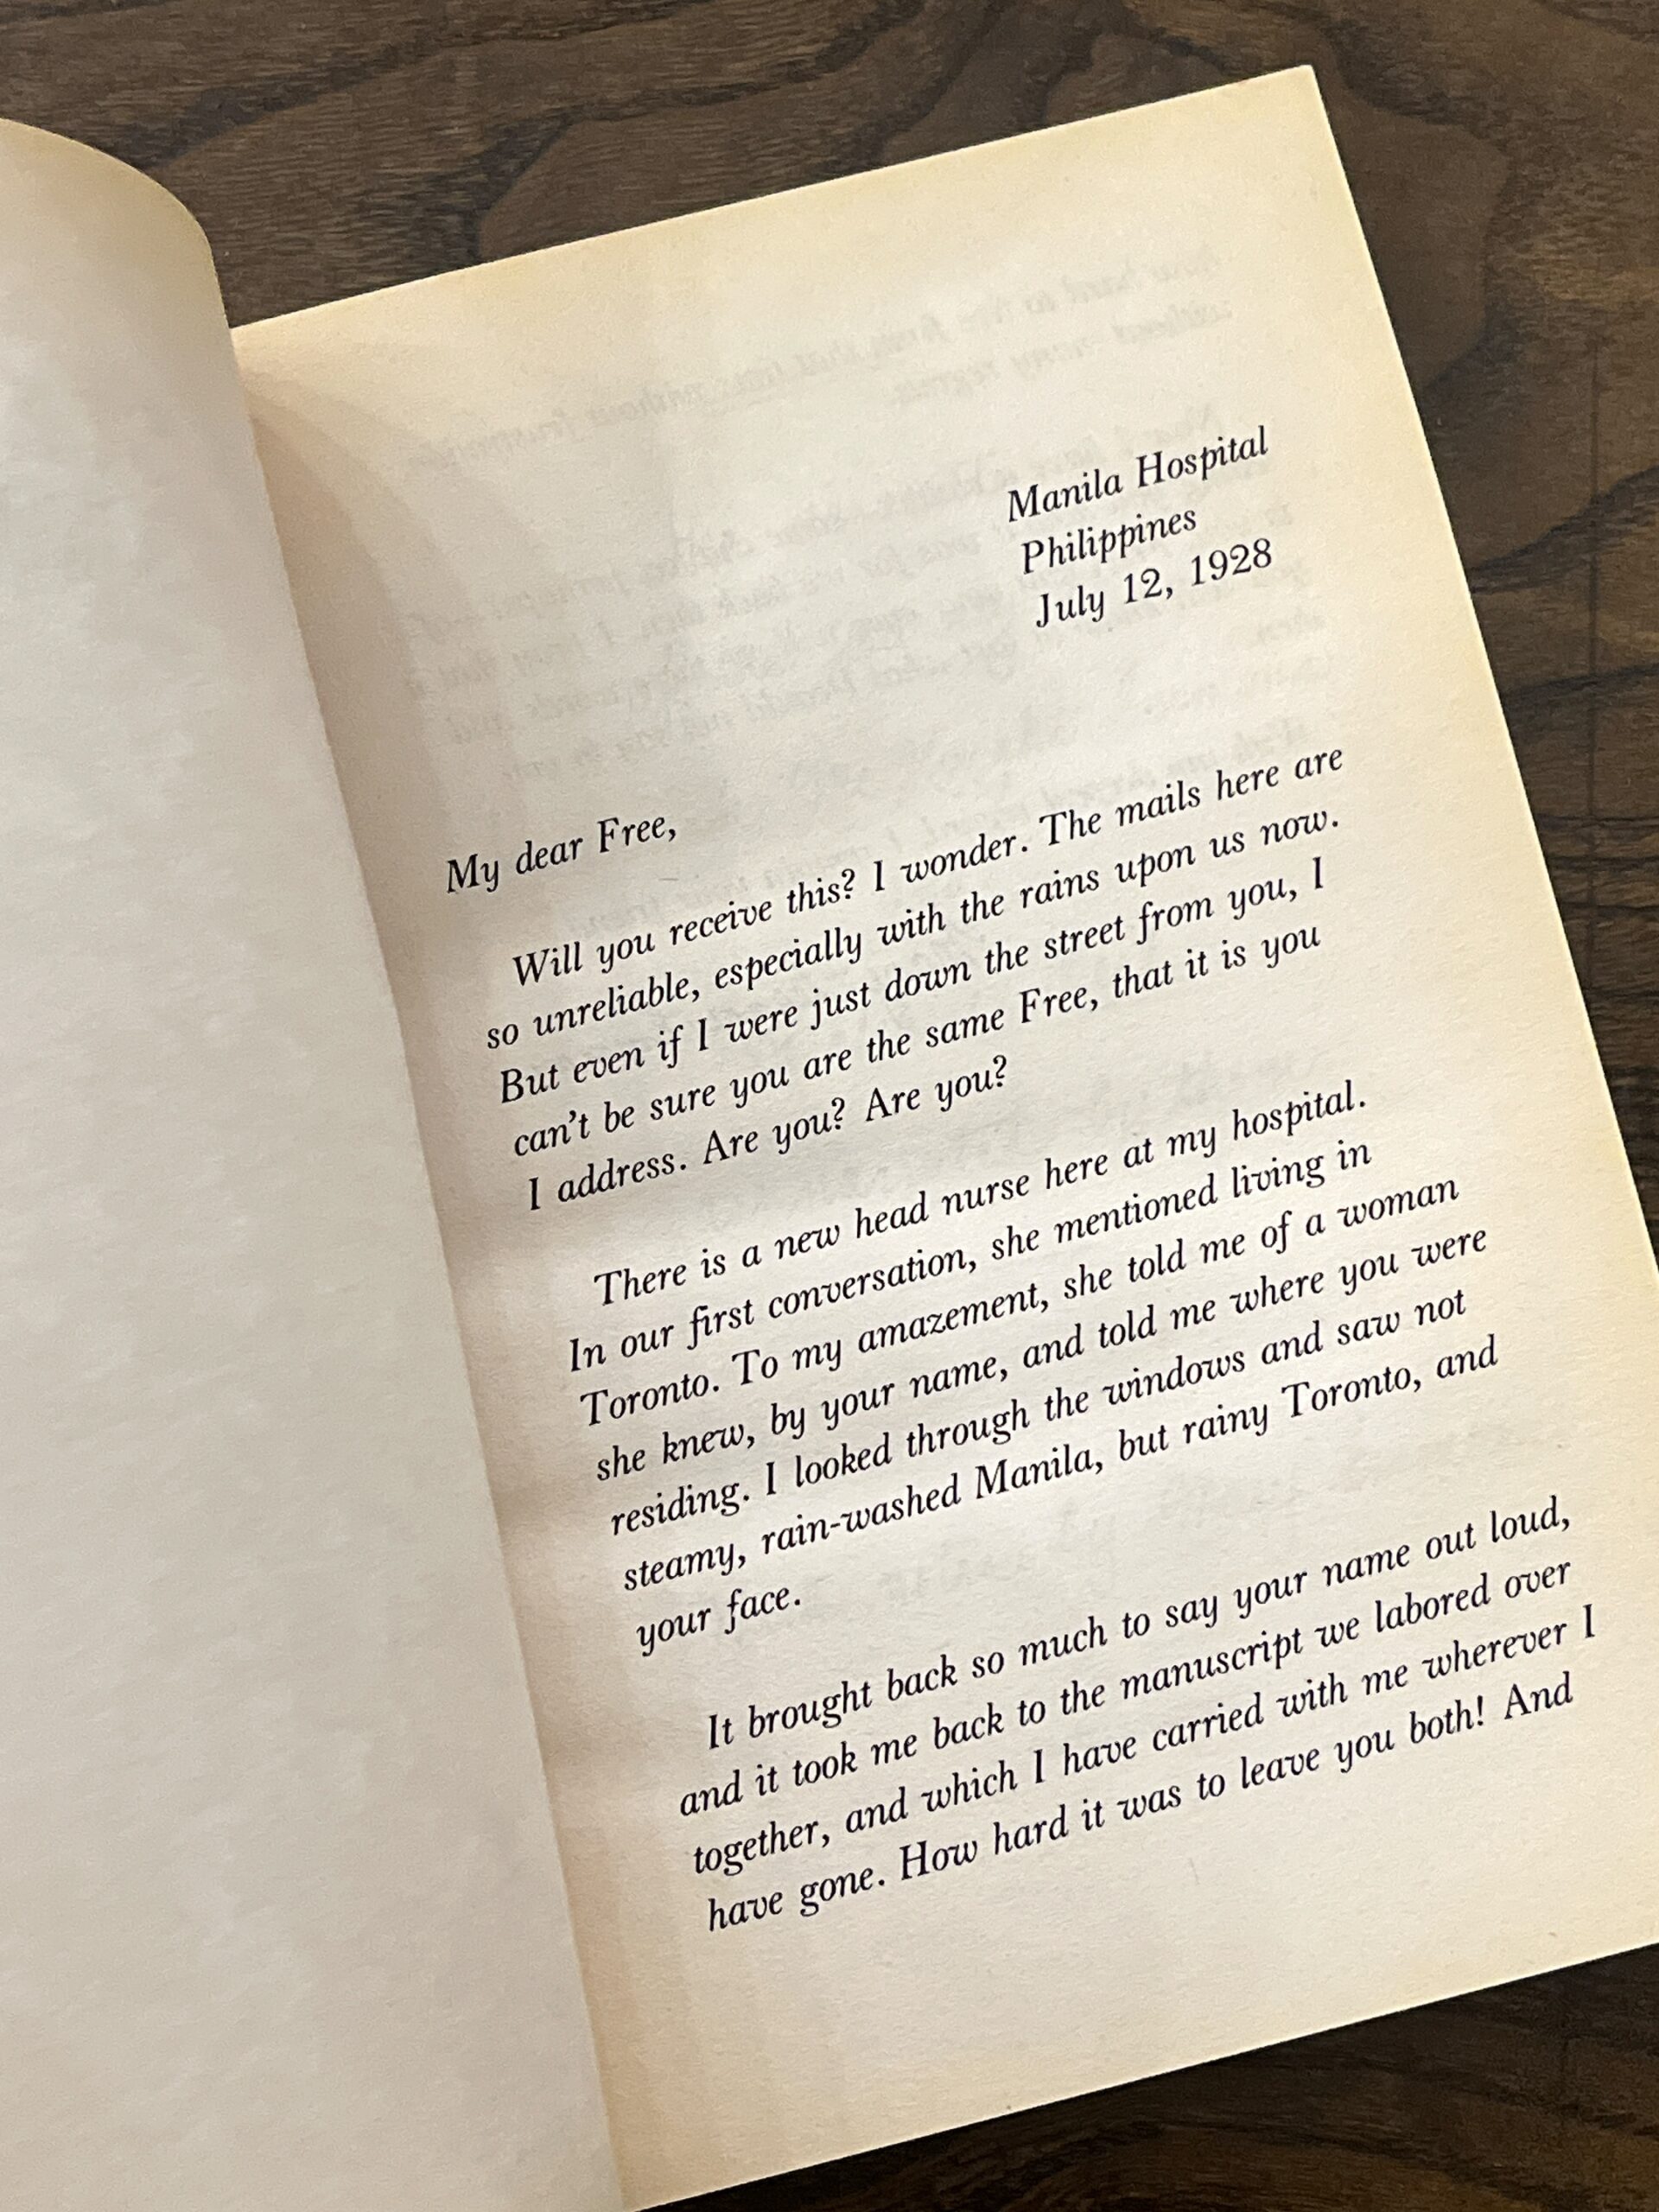 Manila Hospital
Philippines
July 12, 1928
My dear Free,
Will you receive this? I wonder. The mails here are
so unreliable, especially with the rains upon us now.
But even if I were just down the street from you, I
can't be sure you are the same Free, that it is you
I address. Are you? Are you?
There is a new head nurse here at my hospital.
In our first conversation, she mentioned living in
Toronto. To my amazement, she told me of a woman
she knew, by your name, and told me where you were
residing. I looked through the windows and saw not
steamy, rain-washed Manila, but rainy Toronto, and
your face.
It brought back so much to say your name out loud,
and it took me back to the manuscript we labored over
together, and which I have carried with me wherever I
have gone. How hard it was to leave you both! And